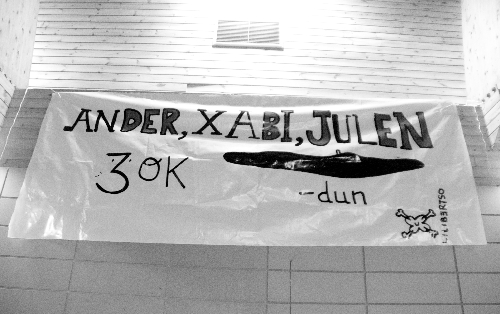 ANDER, XABI, JULEN
3 OK
-dun